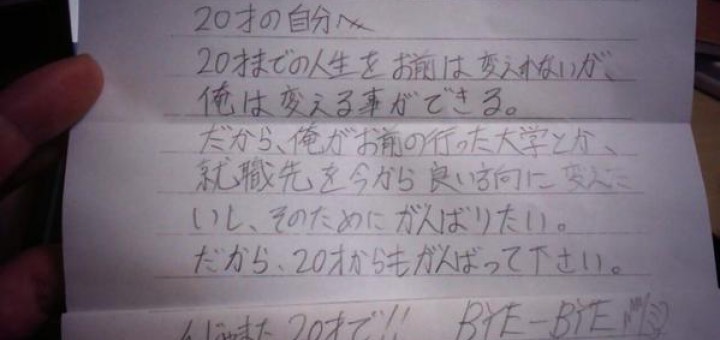 20才の自分へ
20才までの人生をお前は変えれないが、
俺は変える事ができる。
だから、俺がお前の行った大学とか、
就職先を今から良い方向に変えた
いし、そのためにがんばりたい。
だから、20才からもがんばって下さい。
んじゃまた20才で!! BYE-BYE